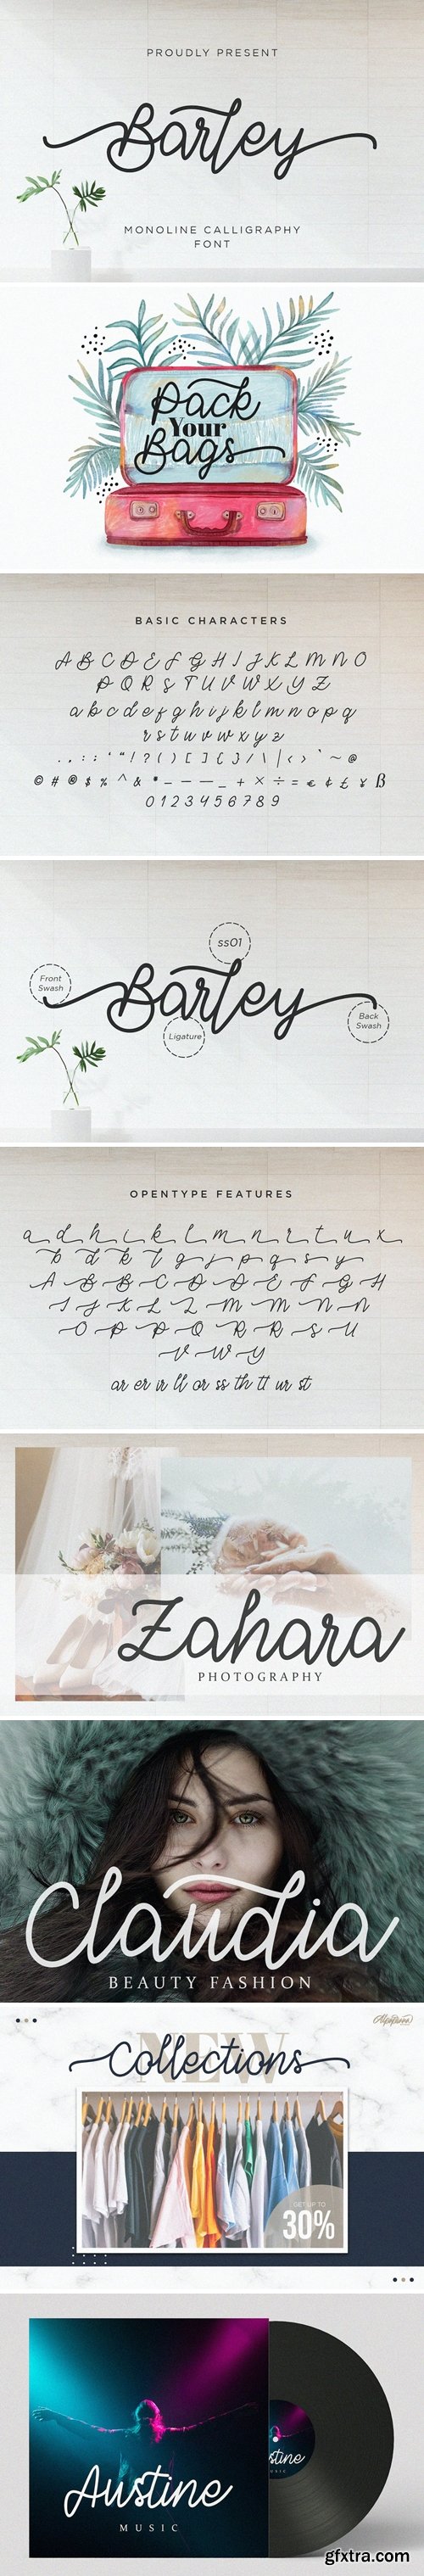 PROUDLY PRESENT
Barley
MONOLINE CALLIGRAPHY
FONT
Pack
Your
Bags
BASIC CHARACTERS
A B C D E F G H I J K L M N O
P Q R S T U V W X Y Z
a b c d e f g h i j k l m n o p q
r s t u v w x y z
. , : ; ' " ! ? ( ) [ ] { } / \ | < > ` ~ @
© # @ $ % ^ & * – — — _ + × ÷ = € ¢ £ ¥ ß
0 1 2 3 4 5 6 7 8 9
ss01
Front
Swash
Barley
Ligature
Back
Swash
OPENTYPE FEATURES
a d h i k l m n r t u x
b d k l g j p q s y
A B B C D D E F G H
I J K L L M M N N
O P P Q R R S U
V W Y
ar er ir ll or ss th tt ur st
Zahara
PHOTOGRAPHY
Claudia
BEAUTY FASHION
NEW
Collections
GET UP TO
30%
Austine
MUSIC
stine
USIC
gfxtra.com